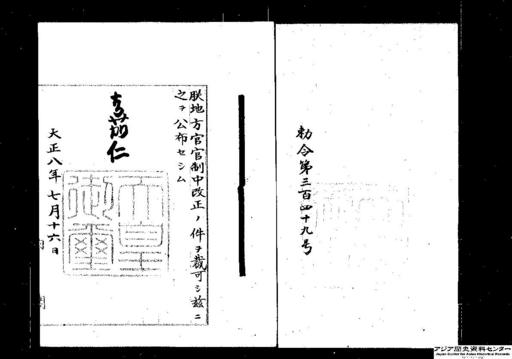 勅令第三百四十九号
朕地方官官制中改正ノ件ヲ裁可シ茲ニ
之ヲ公布セシム
嘉仁
天皇
御璽
大正八年七月十六日
アジア歴史資料センター
Japan Center for Asian Historical Records